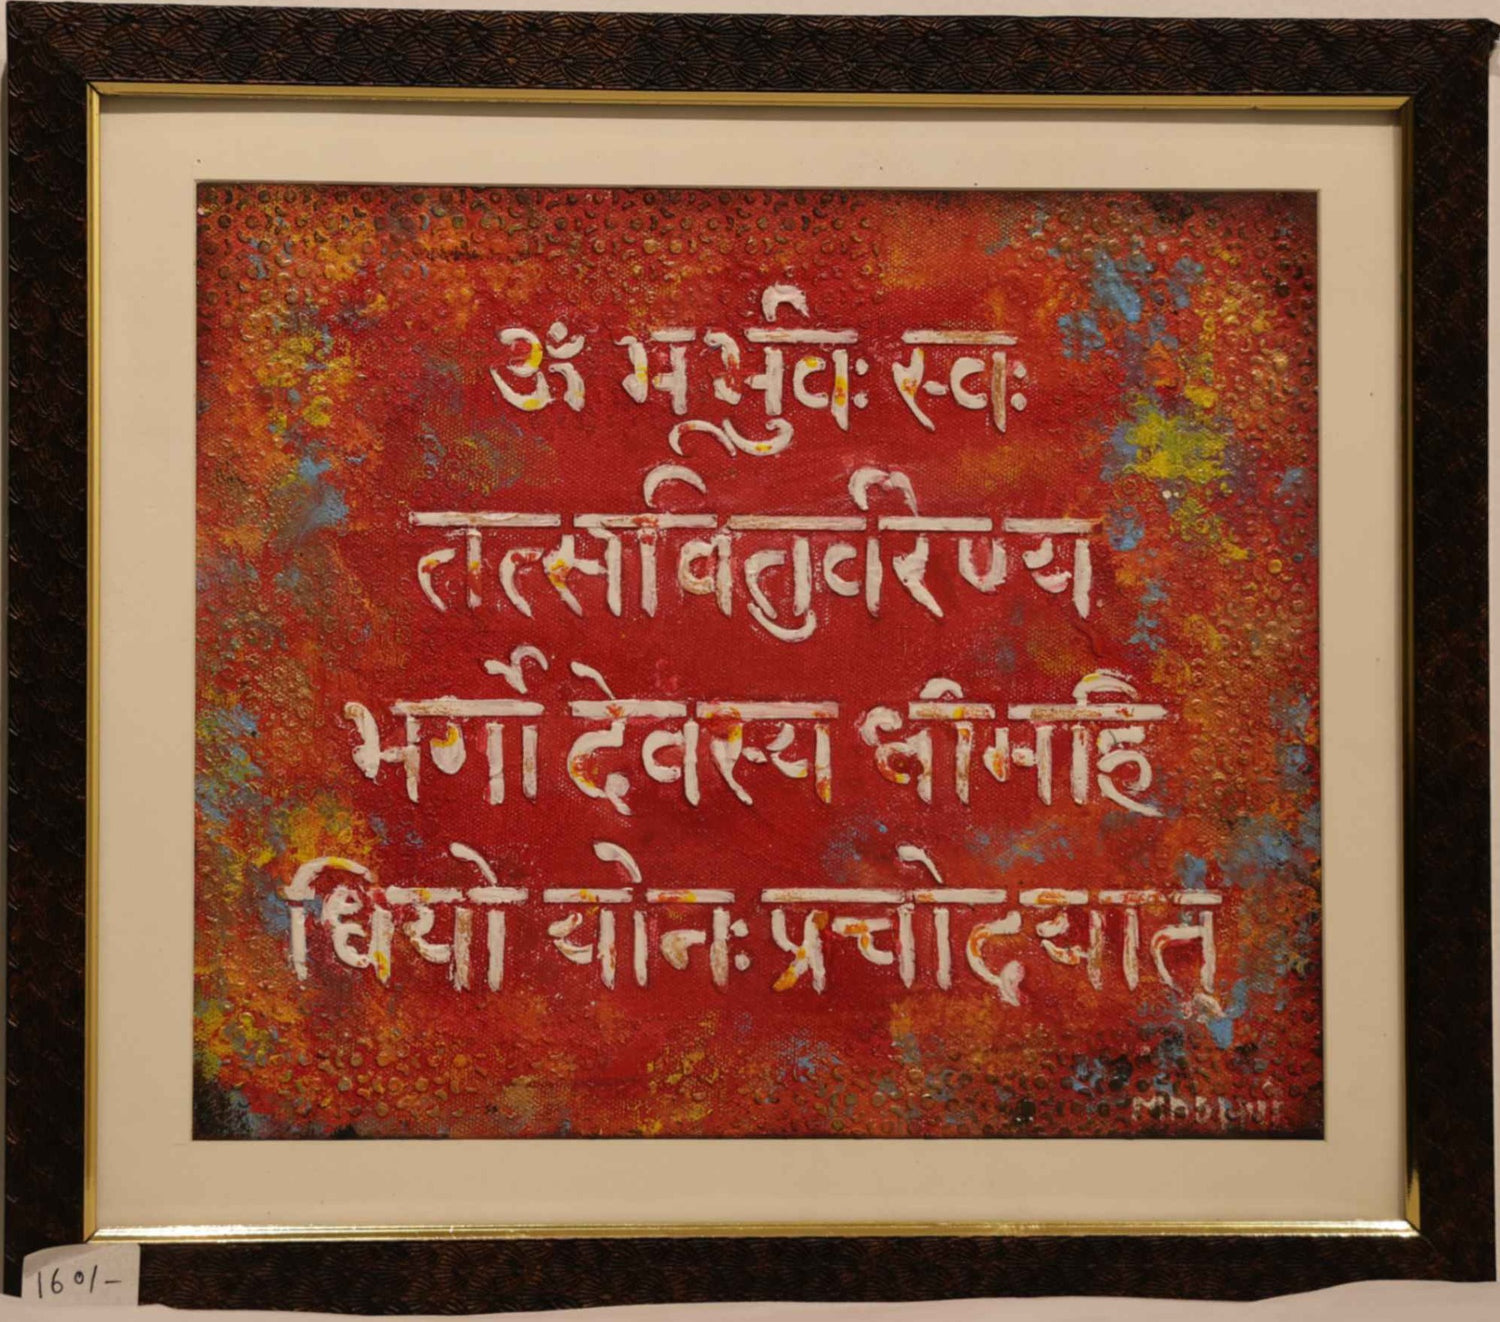 ॐ भूर्भुवः स्वः
तत्सवितुर्वरेण्य
भर्गो देवस्य धीमहि
धियो योनः प्रचोदयात्
160/-